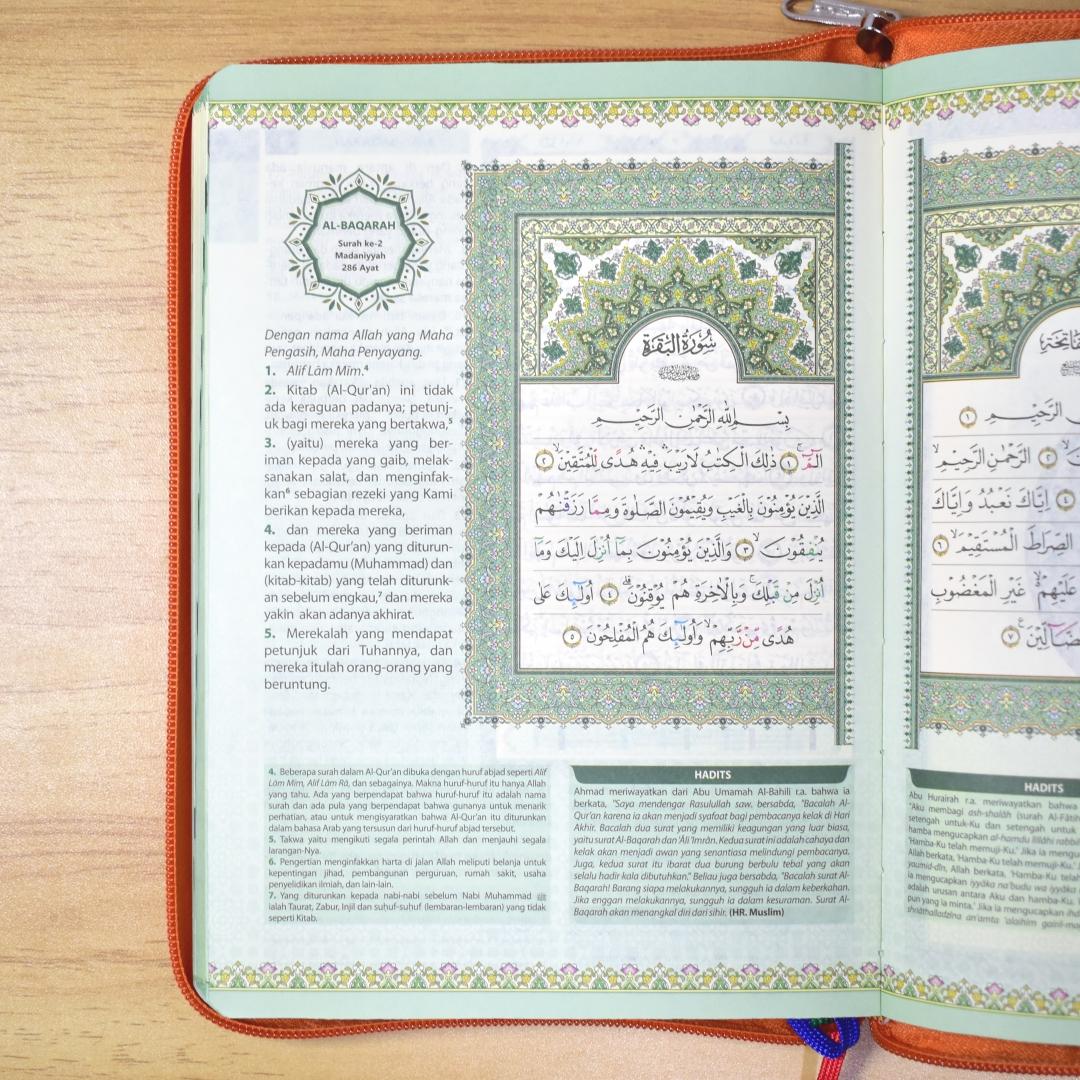 AL-BAQARAH
Surah ke-2
Madaniyyah
286 Ayat
Dengan nama Allah yang Maha
Pengasih, Maha Penyayang.
1. Alif Lām Mīm.⁴
2. Kitab (Al-Qur'an) ini tidak
ada keraguan padanya; petunj-
uk bagi mereka yang bertakwa,⁵
3. (yaitu) mereka yang ber-
iman kepada yang gaib, melak-
sanakan salat, dan menginfak-
kan⁶ sebagian rezeki yang Kami
berikan kepada mereka,
4. dan mereka yang beriman
kepada (Al-Qur'an) yang diturun-
kan kepadamu (Muhammad) dan
(kitab-kitab) yang telah diturunk-
an sebelum engkau,⁷ dan mereka
yakin akan adanya akhirat.
5. Merekalah yang mendapat
petunjuk dari Tuhannya, dan
mereka itulah orang-orang yang
beruntung.
سُوْرَةُ الْبَقَرَةِ
بِسْمِ اللّٰهِ الرَّحْمٰنِ الرَّحِيْمِ
الۤمّۤ ۚ ١ ذٰلِكَ الْكِتٰبُ لَا رَيْبَ ۛ فِيْهِ ۛ هُدًى لِّلْمُتَّقِيْنَۙ ٢
الَّذِيْنَ يُؤْمِنُوْنَ بِالْغَيْبِ وَيُقِيْمُوْنَ الصَّلٰوةَ وَمِمَّا رَزَقْنٰهُمْ
يُنْفِقُوْنَ ۙ ٣ وَالَّذِيْنَ يُؤْمِنُوْنَ بِمَآ اُنْزِلَ اِلَيْكَ وَمَآ
اُنْزِلَ مِنْ قَبْلِكَ ۚ وَبِالْاٰخِرَةِ هُمْ يُوْقِنُوْنَۗ ٤ اُولٰۤىِٕكَ عَلٰى
هُدًى مِّنْ رَّبِّهِمْ ۙ وَاُولٰۤىِٕكَ هُمُ الْمُفْلِحُوْنَ ٥
4. Beberapa surah dalam Al-Qur'an dibuka dengan huruf abjad seperti Alif
Lām Mīm, Alif Lām Rā, dan sebagainya. Makna huruf-huruf itu hanya Allah
yang tahu. Ada yang berpendapat bahwa huruf-huruf itu adalah nama
surah dan ada pula yang berpendapat bahwa gunanya untuk menarik
perhatian, atau untuk mengisyaratkan bahwa Al-Qur'an itu diturunkan
dalam bahasa Arab yang tersusun dari huruf-huruf abjad tersebut.
5. Takwa yaitu mengikuti segala perintah Allah dan menjauhi segala
larangan-Nya.
6. Pengertian menginfakkan harta di jalan Allah meliputi belanja untuk
kepentingan jihad, pembangunan perguruan, rumah sakit, usaha
penyelidikan ilmiah, dan lain-lain.
7. Yang diturunkan kepada nabi-nabi sebelum Nabi Muhammad ﷺ
ialah Taurat, Zabur, Injil dan suḥuf-suḥuf (lembaran-lembaran) yang tidak
seperti Kitab.
HADITS
Ahmad meriwayatkan dari Abu Umamah Al-Bahili r.a. bahwa ia
berkata, "Saya mendengar Rasulullah saw. bersabda, "Bacalah Al-
Qur'an karena ia akan menjadi syafoat bagi pembacanya kelak di Hari
Akhir. Bacalah dua surat yang memiliki keagungan yang luar biasa,
yaitu surat Al-Baqarah dan 'Āli 'Imrān. Kedua surat ini adalah cahaya dan
kelak akan menjadi awan yang senantiasa melindungi pembacanya.
Juga, kedua surat itu ibarat dua burung berbulu tebal yang akan
selalu hadir kala dibutuhkan." Beliau juga bersabda, "Bacalah surat Al-
Baqarah! Barang siapa melakukannya, sungguh ia dalam keberkahan.
Jika enggan melakukannya, sungguh ia dalam kesuraman. Surat Al-
Baqarah akan menangkal diri dari sihir. (HR. Muslim)
الرَّحِيْمِ ١
٢ الرَّحْمٰنِ الرَّحِيْمِۙ
٤ اِيَّاكَ نَعْبُدُ وَاِيَّاكَ
الصِّرَاطَ الْمُسْتَقِيْمَۙ ٦
عَلَيْهِمْ ەۙ غَيْرِ الْمَغْضُوْبِ
٧
HADITS
Abu Hurairah r.a. meriwayatkan bahwa
"Aku membagi ash-shalāh (surah Al-Fātih
setengah untuk-Ku dan setengah untuk
hamba mengucapkan al-hamdu lillāhi rabbil
'Hamba-Ku telah memuji-Ku.' Jika ia mengu
Allah berkata, 'Hamba-Ku telah memuji-Ku.'
yaumid-dīn, Allah berkata, 'Hamba-Ku telah
ia mengucapkan iyyāka na'budu wa iyyāka
adalah urusan antara Aku dan hamba-Ku.
pun yang ia minta.' Jika ia mengucapkan ihd
shirāthalladzīna an'amta 'alaihim gairil-ma